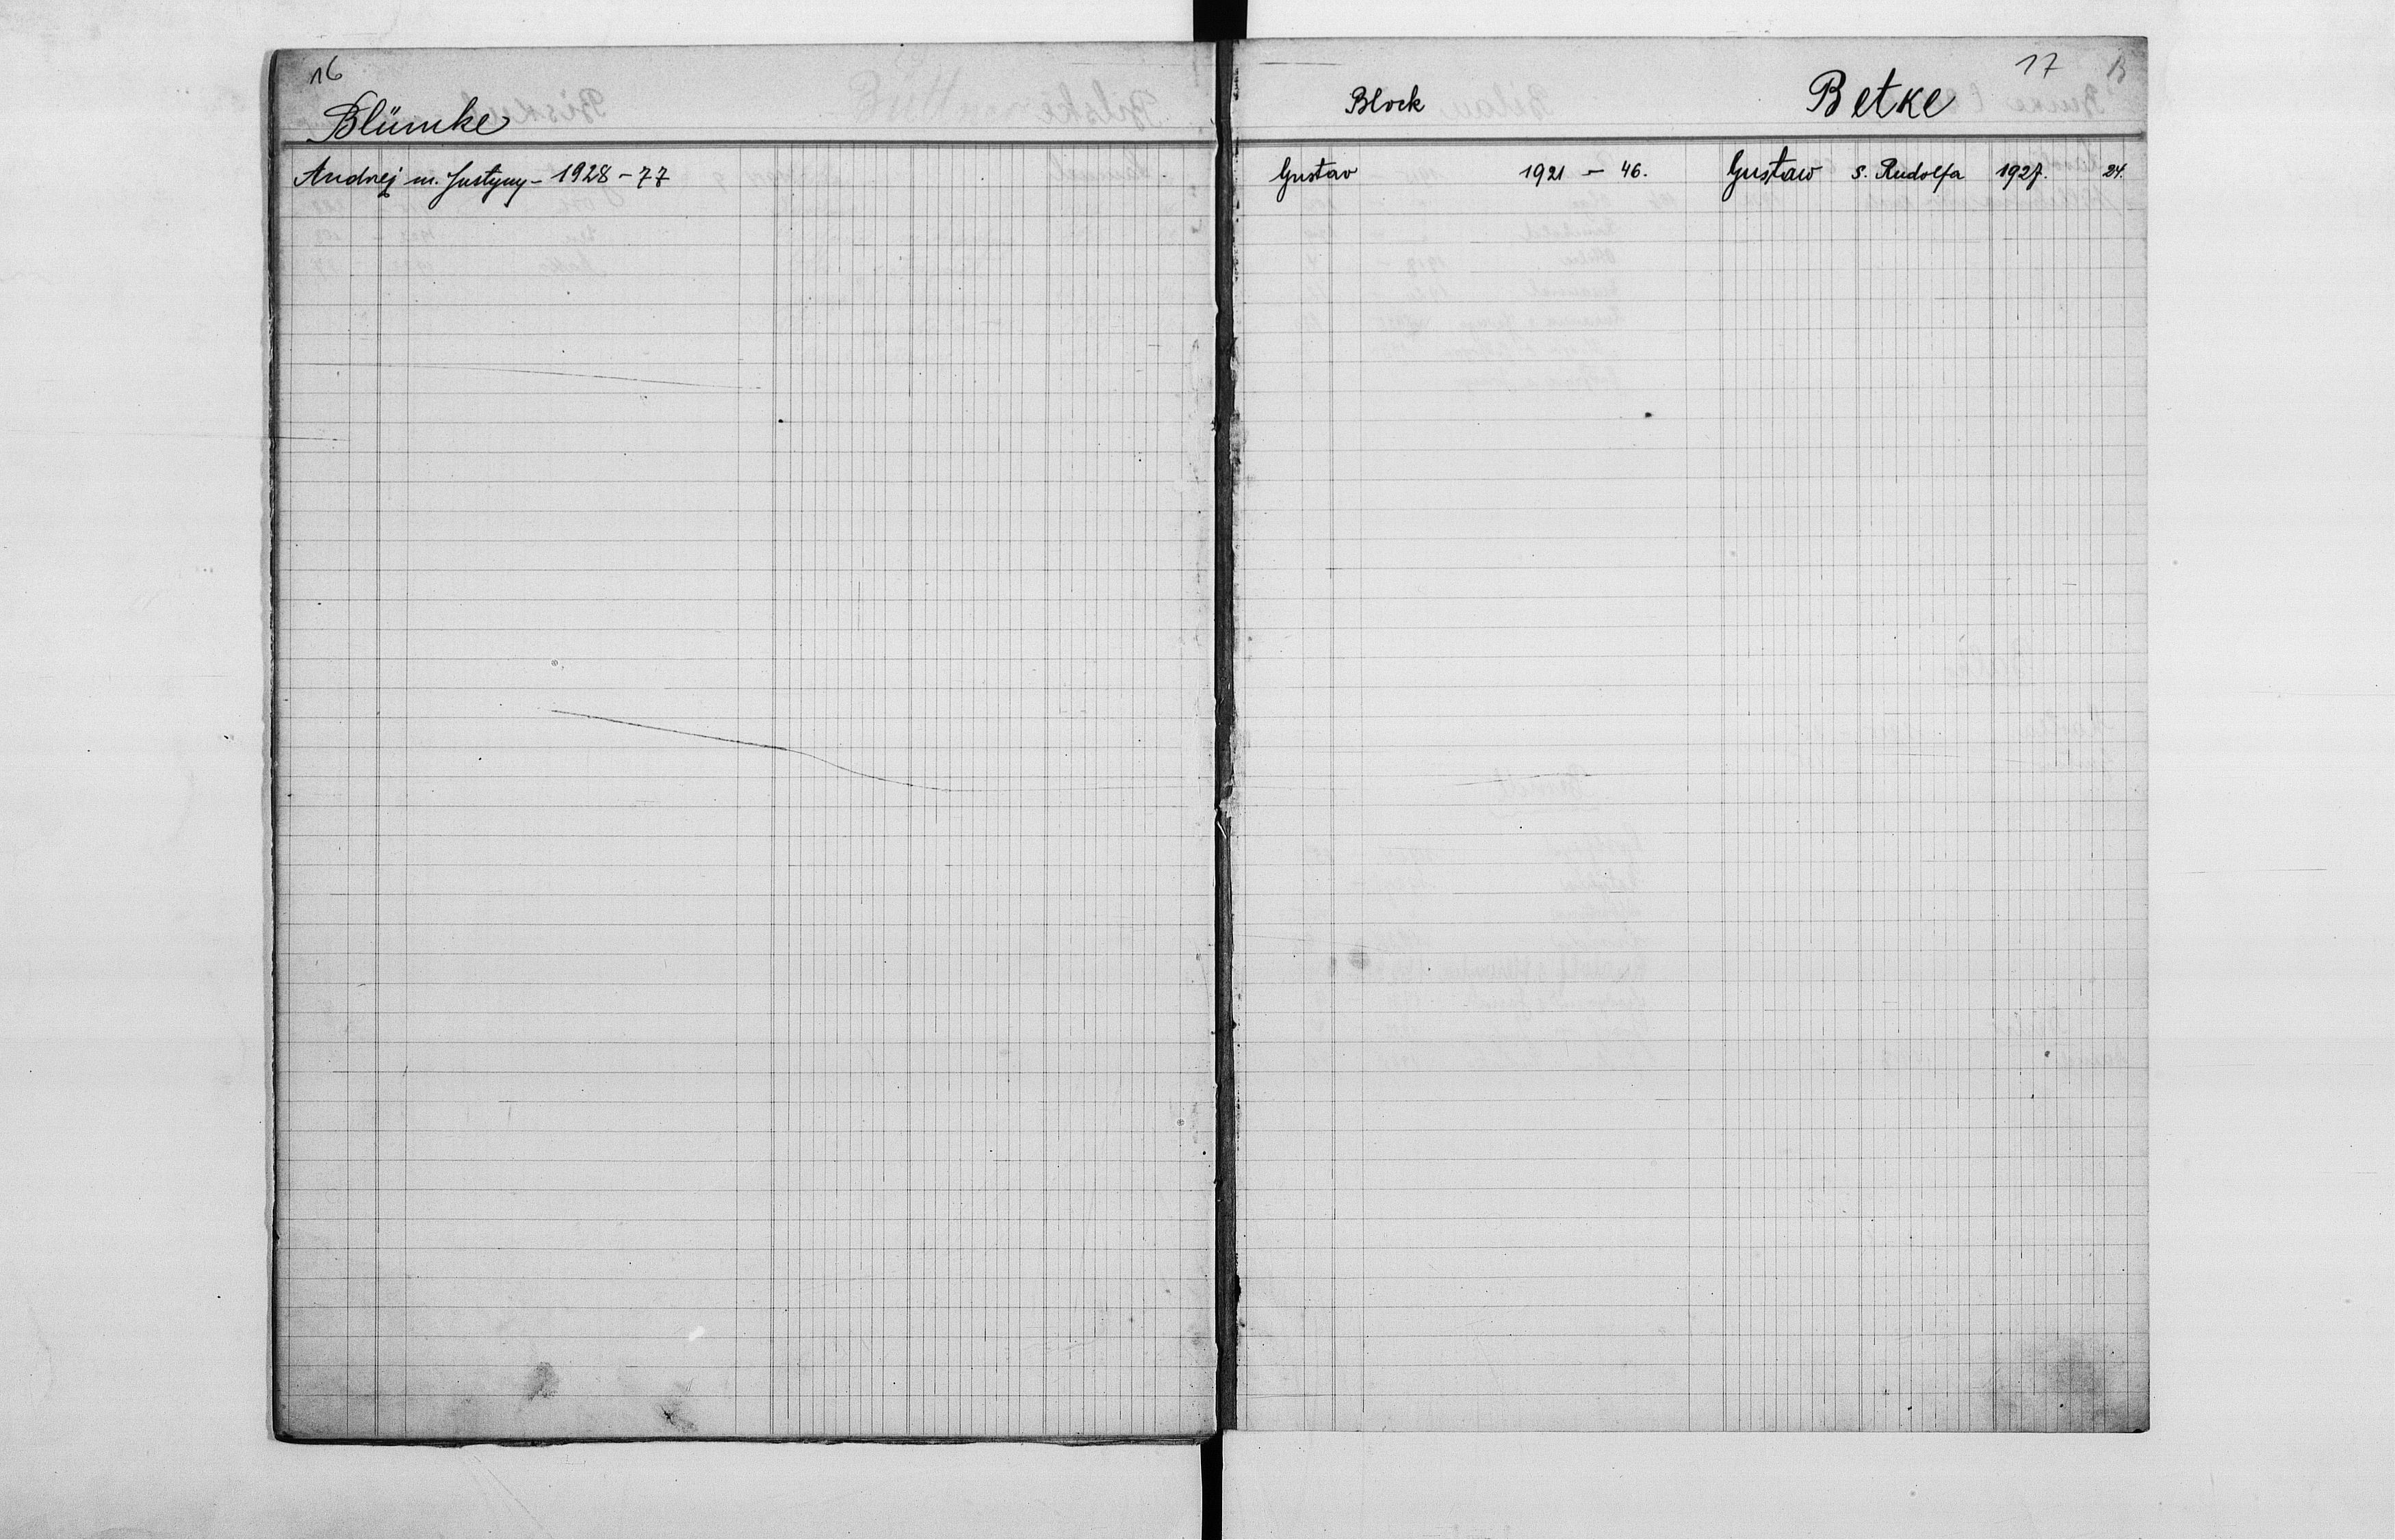 16
Blümke
Andrzej m. Justyny - 1928 - 77
17
Block
Gustav 1921 - 46.
Betke
Gustaw s. Rudolfa 1927. 24.